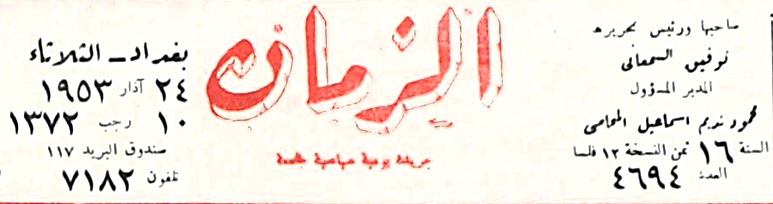 صاحبها ورئيس تحريرها
توفيق السمعاني
المدير المسؤول
محمود نديم اسماعيل المحامي
السنة ١٦ ثمن النسخة ١٢ فلسا
العدد ٤٦٩٤
الزمان
جريدة يومية سياسية
بغداد ــ الثلاثاء
٢٤ آذار ١٩٥٣
١٠ رجب ١٣٧٢
صندوق البريد ١١٧
تلفون ٧١٨٢